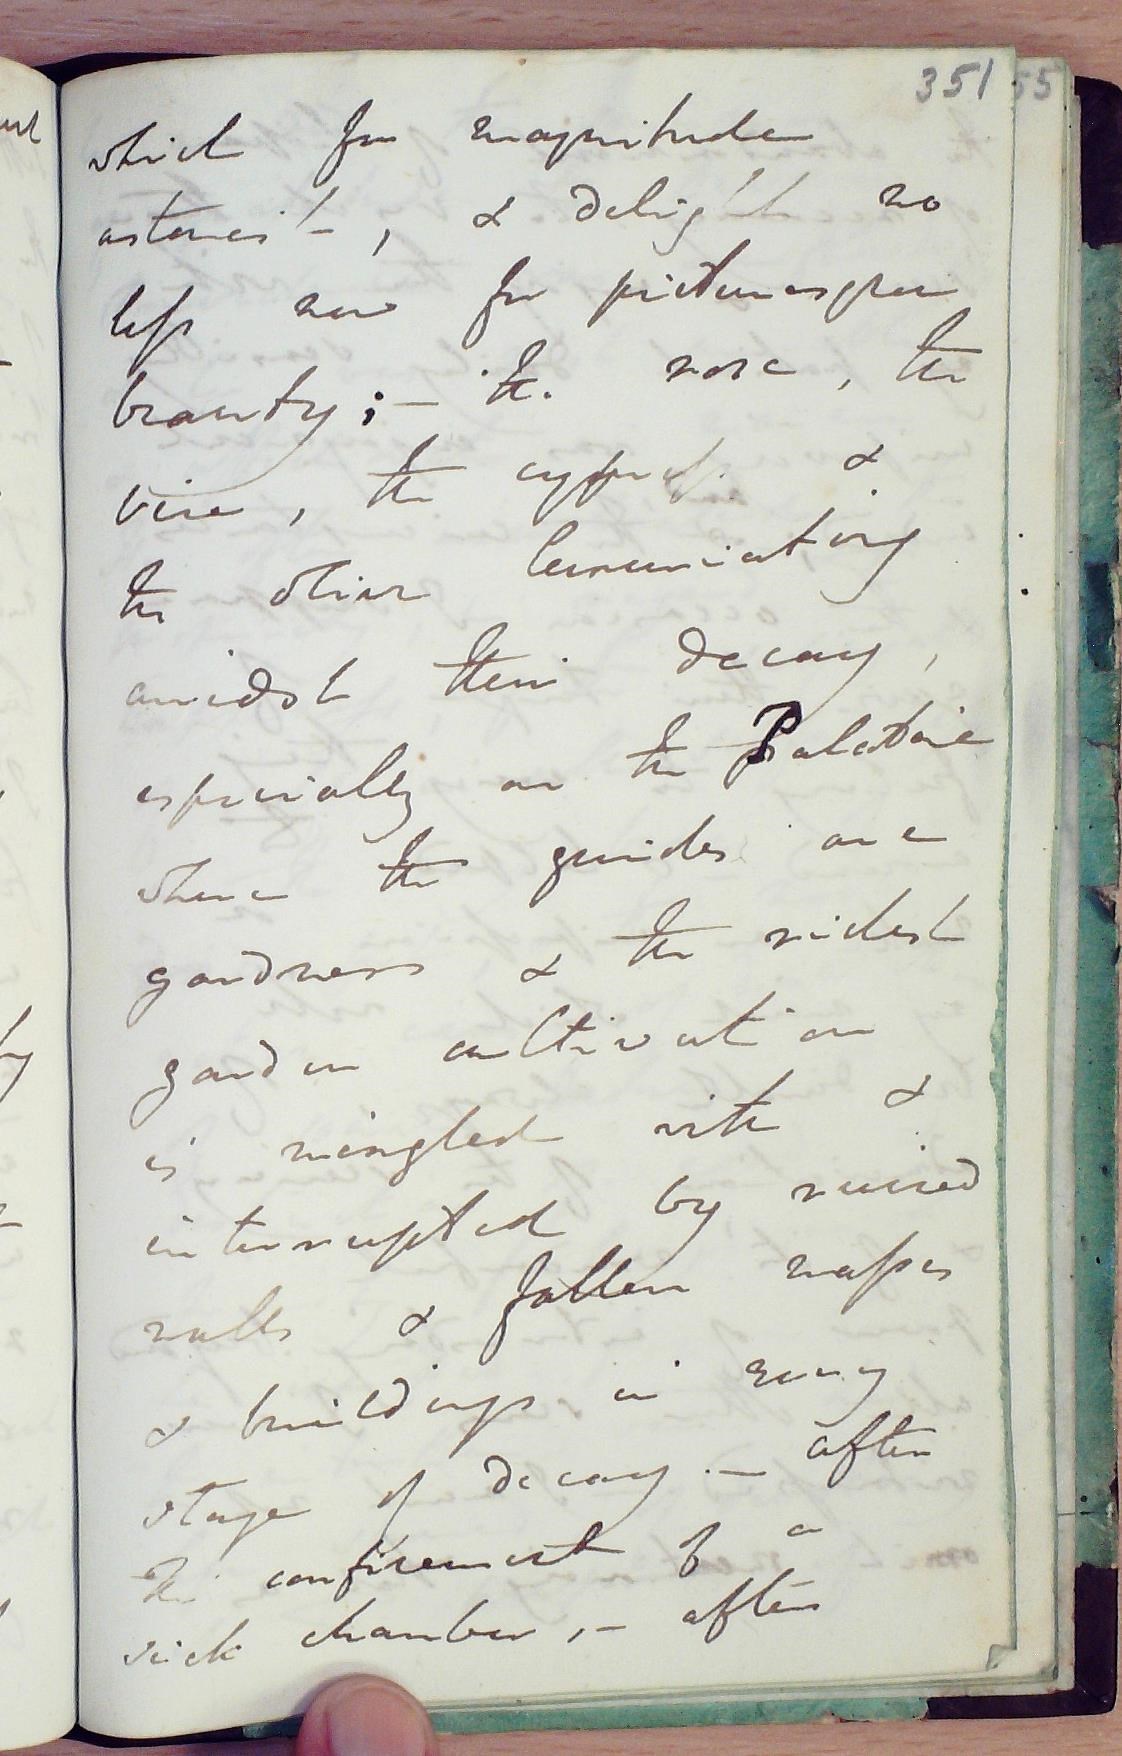 351 55
which for magnitude
astonish, & delight no
less now for picturesque
beauty; – the rose, the
vine, the cypress &
the olive luxuriating
amidst their decay,
especially on the Palatine
where the guides are
gardners & the richest
garden cultivation
is mingled with &
interrupted by ruined
walls & fallen masses
& buildings in every
stage of decay. – after
the confinement of a
sick chamber, – after